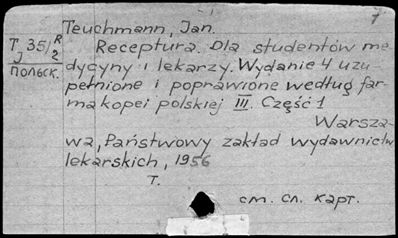 7
Teuchmann, Jan.
T 35/R
J 2
польск.
Receptura. Dla studentów me-
dycyny i lekarzy. Wydanie 4 uzu-
pełnione i poprawione według far-
makopei polskiej III. Część 1
Warsza-
wa, Państwowy zakład wydawnictw
lekarskich, 1956
т.
см. сл. карт.